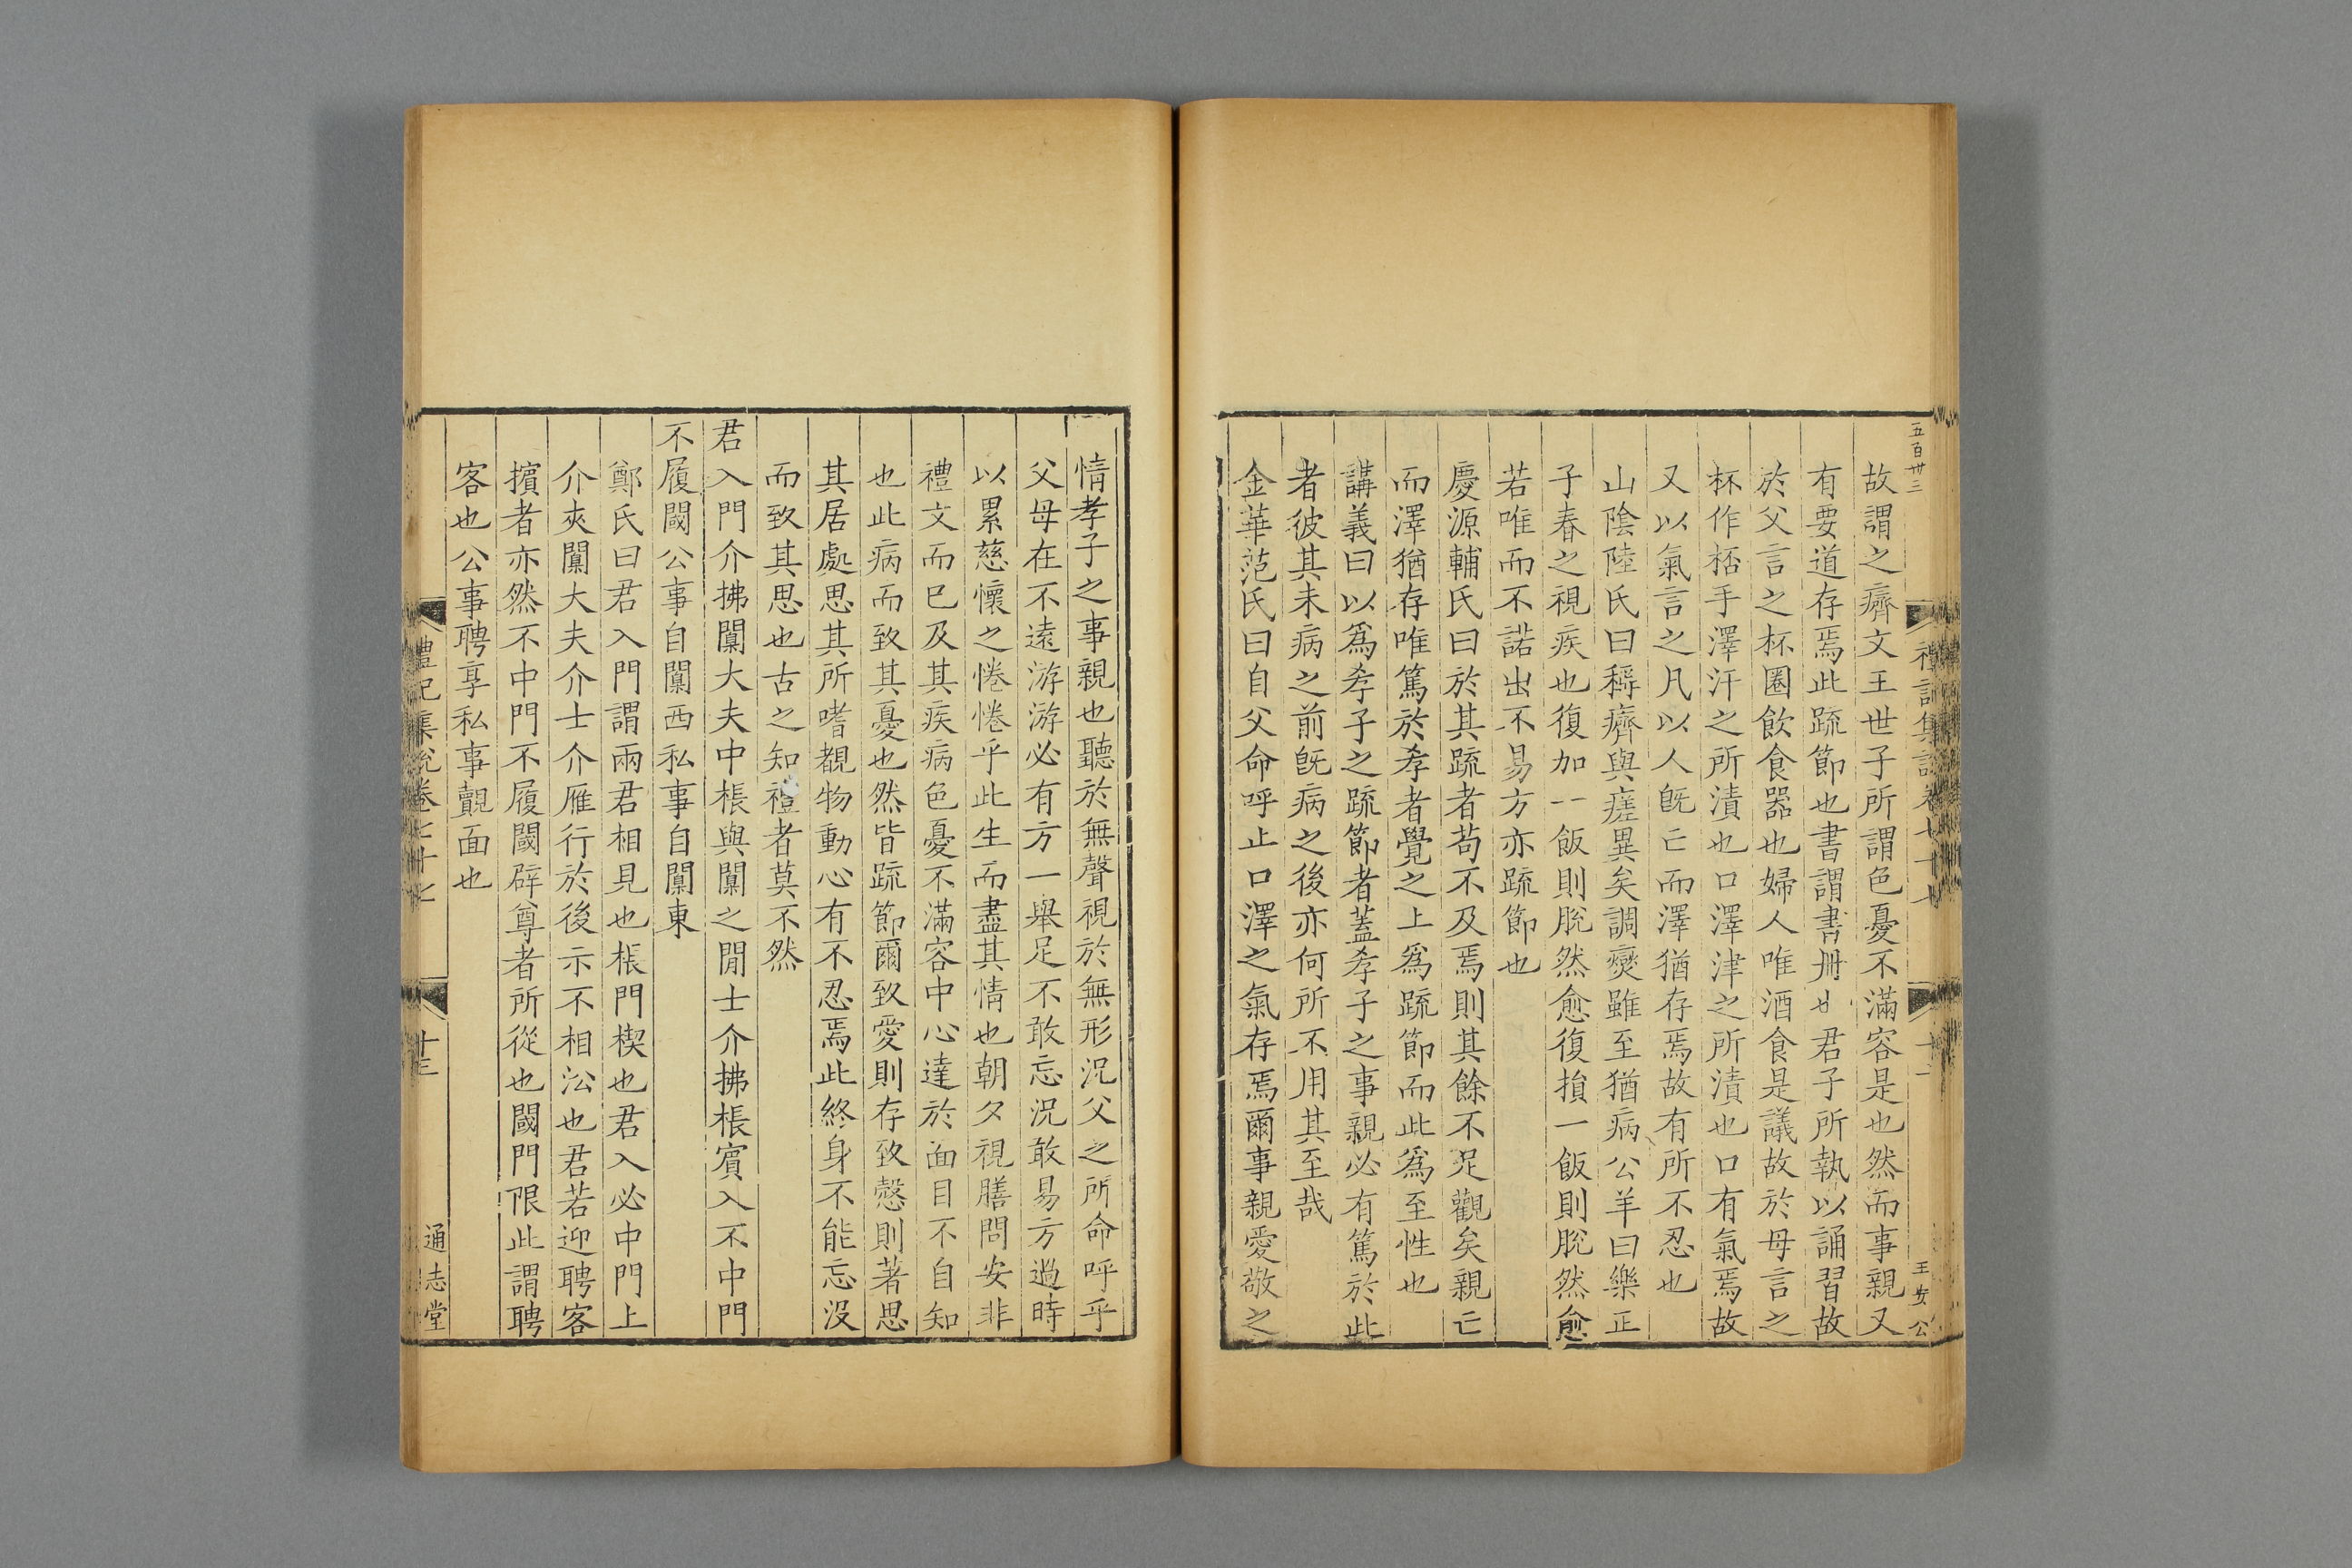 五百卅二
禮記集說卷七十七
十二
王安公
故謂之癠文王世子所謂色憂不滿容是也然而事親又
有要道存焉此疏節也書謂書冊也君子所執以誦習故
於父言之杯圈飲食器也婦人唯酒食是議故於母言之
杯作桮手澤汗之所漬也口澤津之所漬也口有氣焉故
又以氣言之凡以人旣亡而澤猶存焉故有所不忍也
山陰陸氏曰稱癠與瘥異矣調燮雖至猶病公羊曰樂正
子春之視疾也復加一飯則脫然愈復損一飯則脫然愈
若唯而不諾出不易方亦疏節也
慶源輔氏曰於其疏者苟不及焉則其餘不足觀矣親亡
而澤猶存唯篤於孝者覺之上爲疏節而此爲至性也
講義曰以爲孝子之疏節者蓋孝子之事親必有篤於此
者彼其未病之前旣病之後亦何所不用其至哉
金華范氏曰自父命呼止口澤之氣存焉爾事親愛敬之
情孝子之事親也聽於無聲視於無形況父之所命呼乎
父母在不遠游游必有方一舉足不敢忘況敢易方過時
以累慈懷之惓惓乎此生而盡其情也朝夕視膳問安非
禮文而已及其疾病色憂不滿容中心達於面目不自知
也此病而致其憂也然皆疏節爾致愛則存致慤則著思
其居處思其所嗜覩物動心有不忍焉此終身不能忘沒
而致其思也古之知禮者莫不然
君入門介拂闑大夫中棖與闑之閒士介拂棖賓入不中門
不履閾公事自闑西私事自闑東
鄭氏曰君入門謂兩君相見也棖門楔也君入必中門上
介夾闑大夫介士介雁行於後示不相㳂也君若迎聘客
擯者亦然不中門不履閾辟尊者所從也閾門限此謂聘
客也公事聘享私事覿面也
禮記集說卷七十七
十三
通志堂